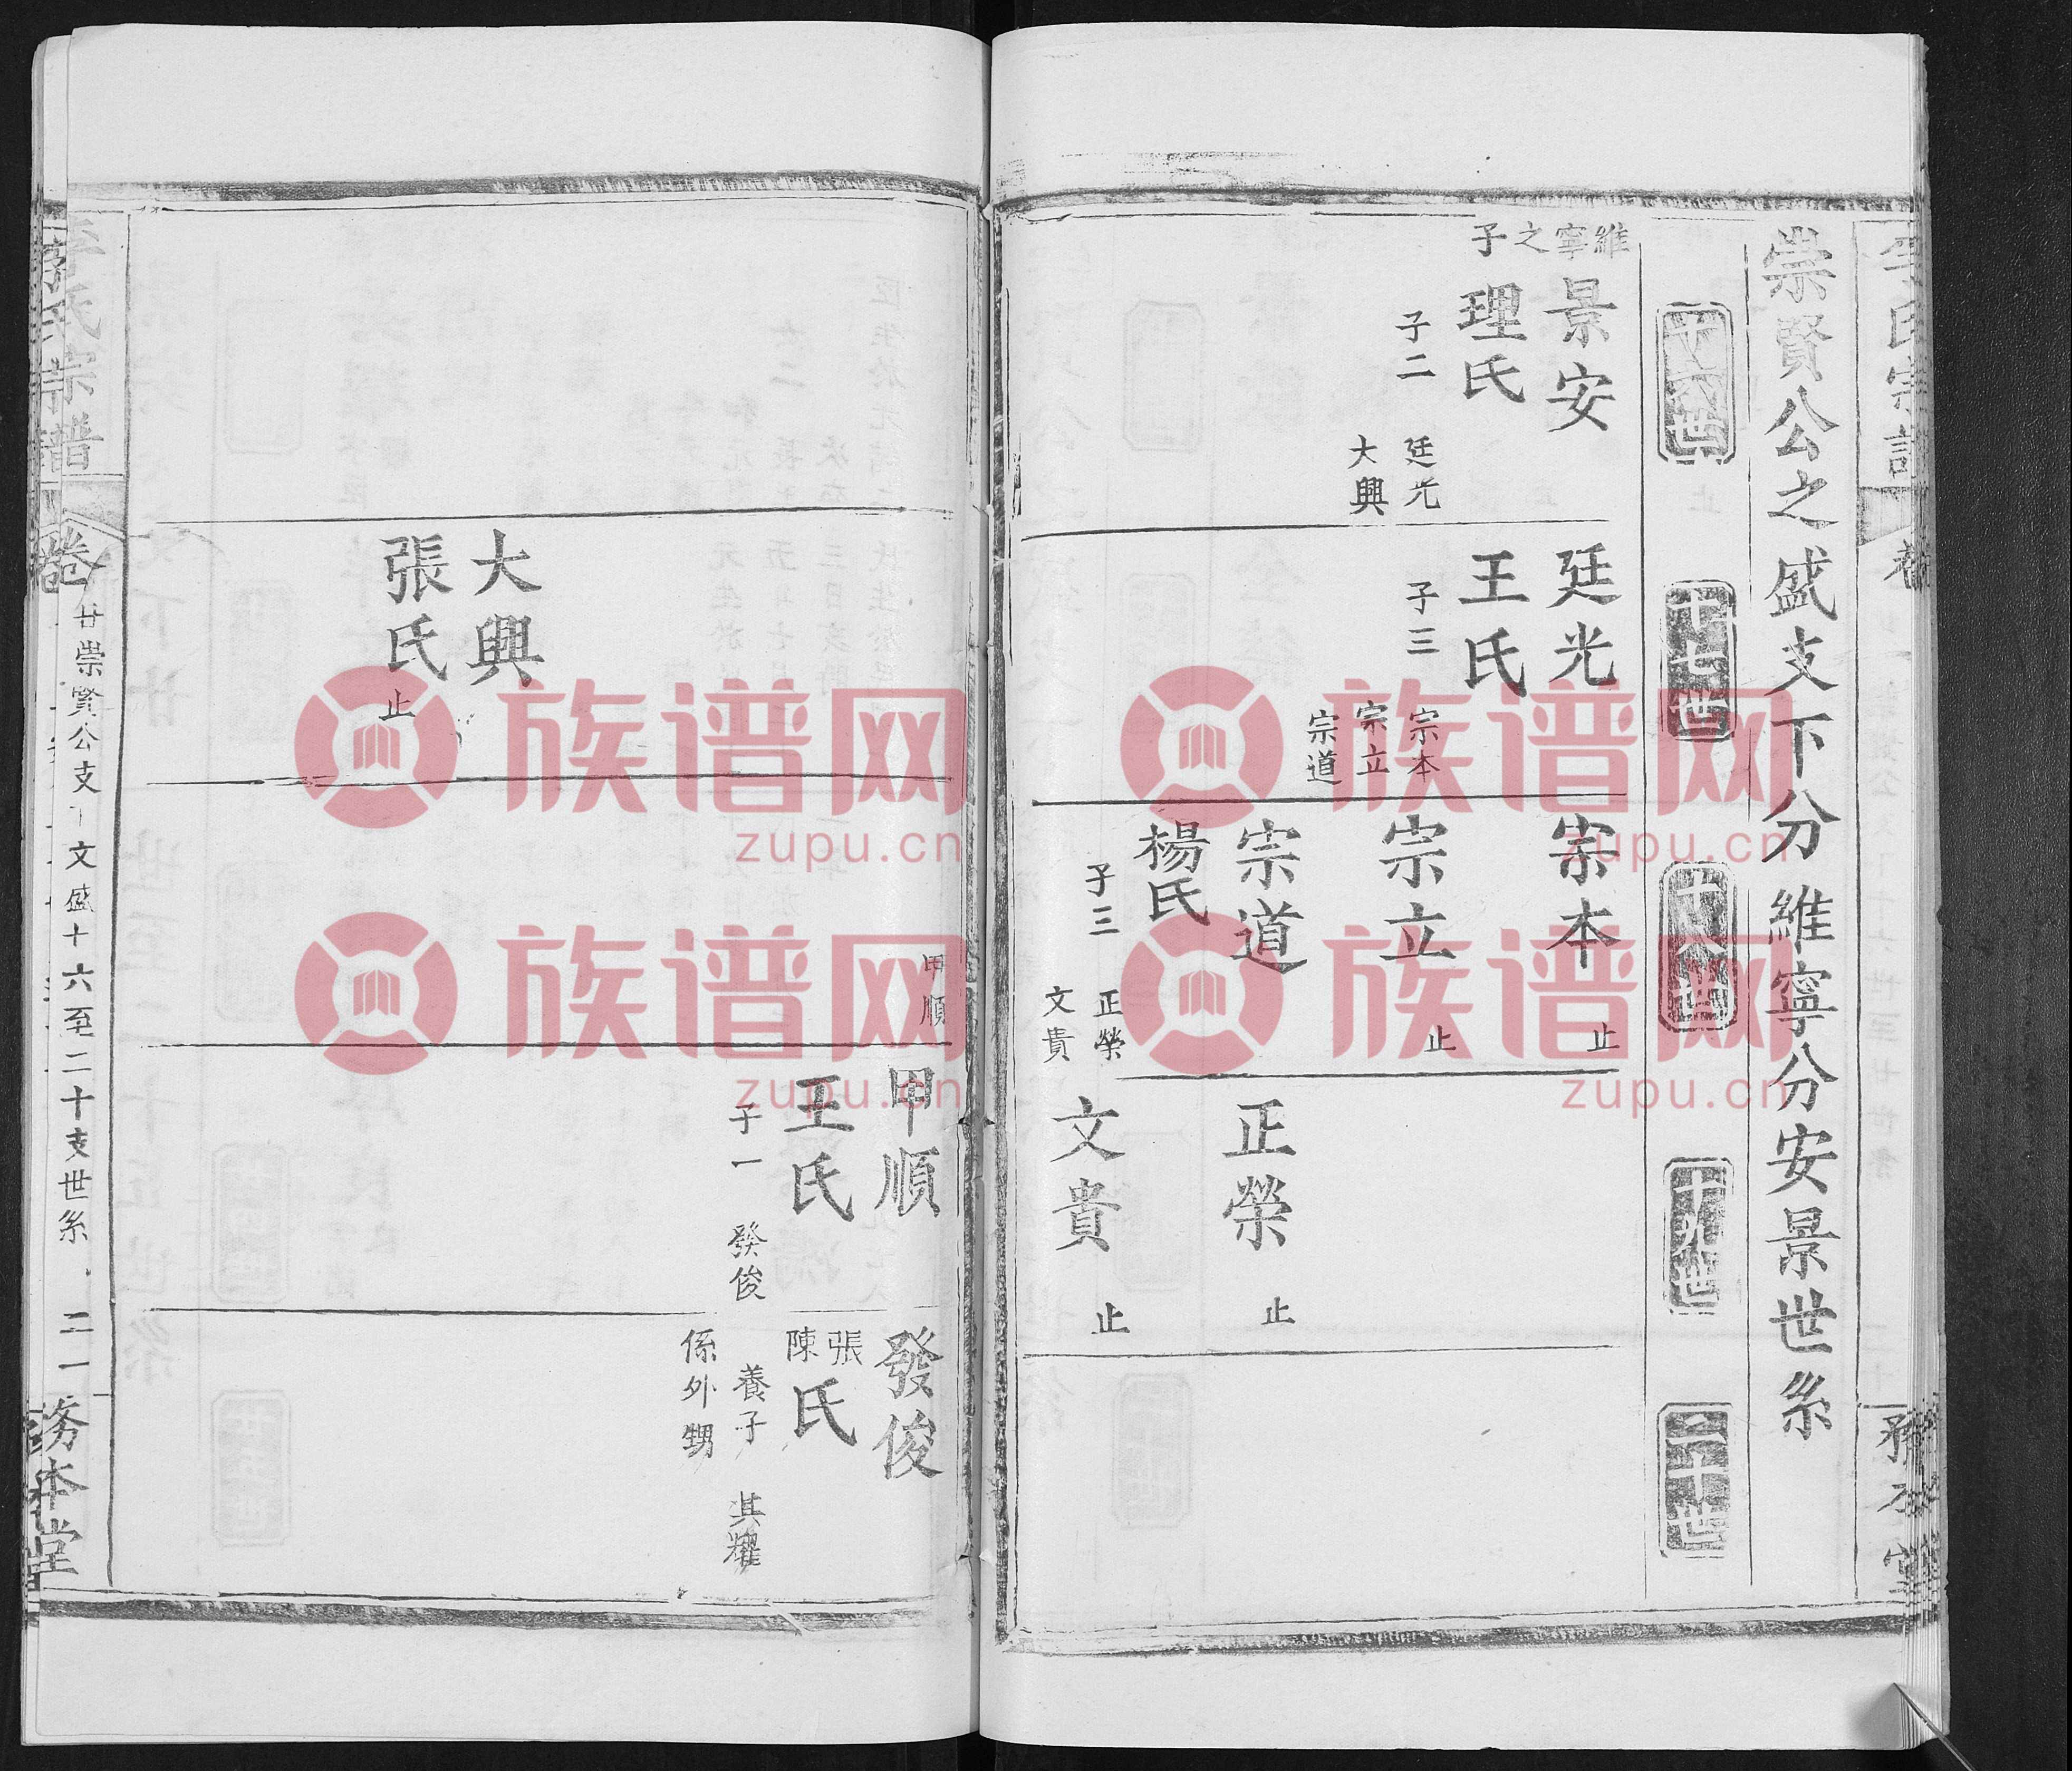 崇賢公之盛支下分維寧分安景世系
十六世
十七世
十八世
十九世
二十世
維寧之子
景安
理氏
子二
廷光
大興
廷光
王氏
子三
宗本
宗立
宗道
宗本
止
宗立
止
宗道
楊氏
子三
正榮
文貴
甲順
正榮
止
文貴
止
大興
張氏
止
甲順
王氏
子一
發俊
發俊
張
陳
氏
養子
其耀
係外甥
氏宗譜
卷
廿崇賢公支下文盛十六至二十支世系
二一
務本堂
族谱网
zupu.cn
族谱网
zupu.cn
族谱网
zupu.cn
族谱网
zupu.cn